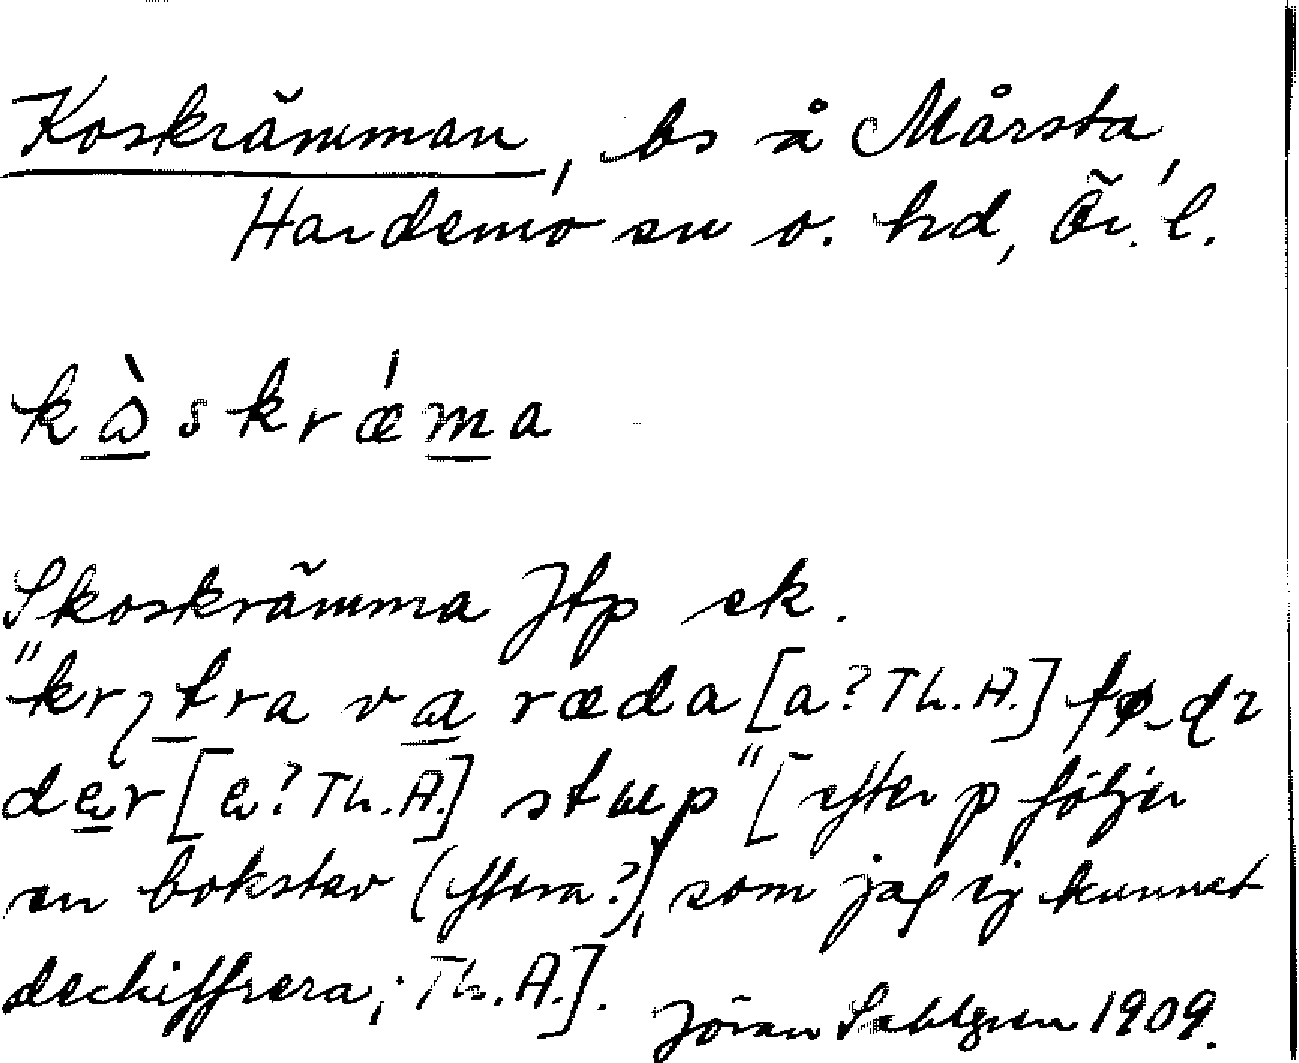 Koskrämman, bs å Mårsta,
Hardemo sn o. hd, Ör. l.
kὼskrǽma
Skoskrämma Jtp ek.
"krɿtra va ræda [a? Th. A.] fø
der [a? Th. A.] stup" [efter p följer
en bokstav (ffera?), som jag ej kunnat
dechiffrera; Th. A.].
Jöran Sahlgren 1909.